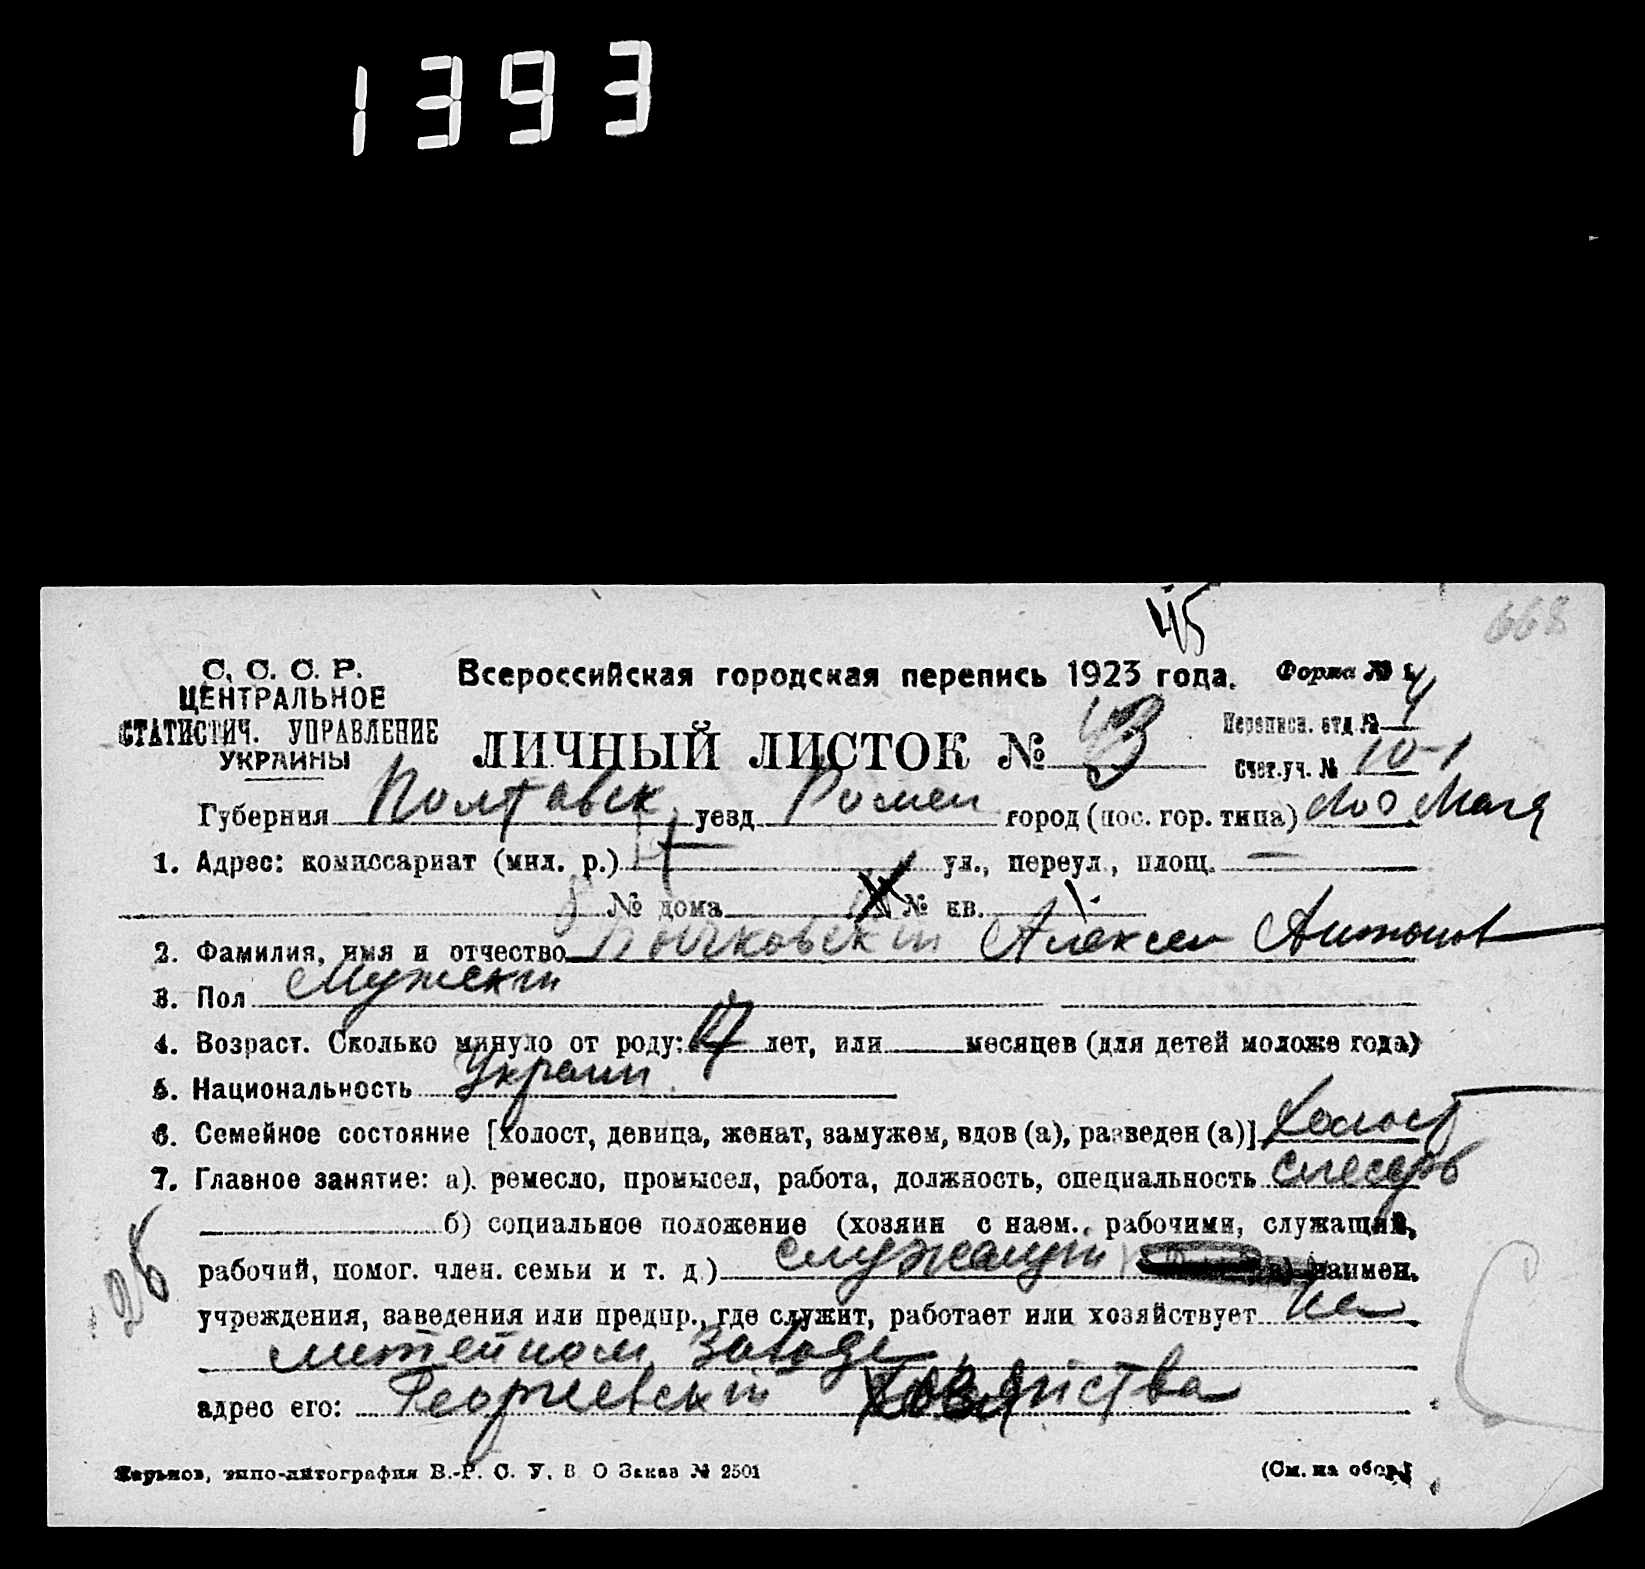 1393
45
668
С. С. С. Р.
ЦЕНТРАЛЬНОЕ
СТАТИСТИЧ. УПРАВЛЕНИЕ
УКРАИНЫ
Всероссийская городская перепись 1923 года.
Форма № 1
Переписн. отд. № 4
ЛИЧНЫЙ ЛИСТОК № 43
Счет. уч. № 10-1
Губерния Полтавск уезд Ромен город (пос. гор. типа)
1. Адрес: комиссариат (мил. р.) ул., переул., площ. —
8 № дома № кв.
2. Фамилия, имя и отчество Алексей Антонов
3. Пол Мужский
4. Возраст. Сколько минуло от роду: 17 лет, или месяцев (для детей моложе года)
5. Национальность Украин
6. Семейное состояние [холост, девица, женат, замужем, вдов (а), разведен (а)] Холост
7. Главное занятие: а). ремесло, промысел, работа, должность, специальность слесарь
б) социальное положение (хозяин с наем. рабочими, служащий,
рабочий, помог. член. семьи и т. д.) служащий в) наимен.
учреждения, заведения или предпр., где служит, работает или хозяйствует на
литейном заводе
адрес его: Георгиевский
26
Харьков, типо-литография В.-Р. С. У. В О Заказ № 2501
(См. на обор.)